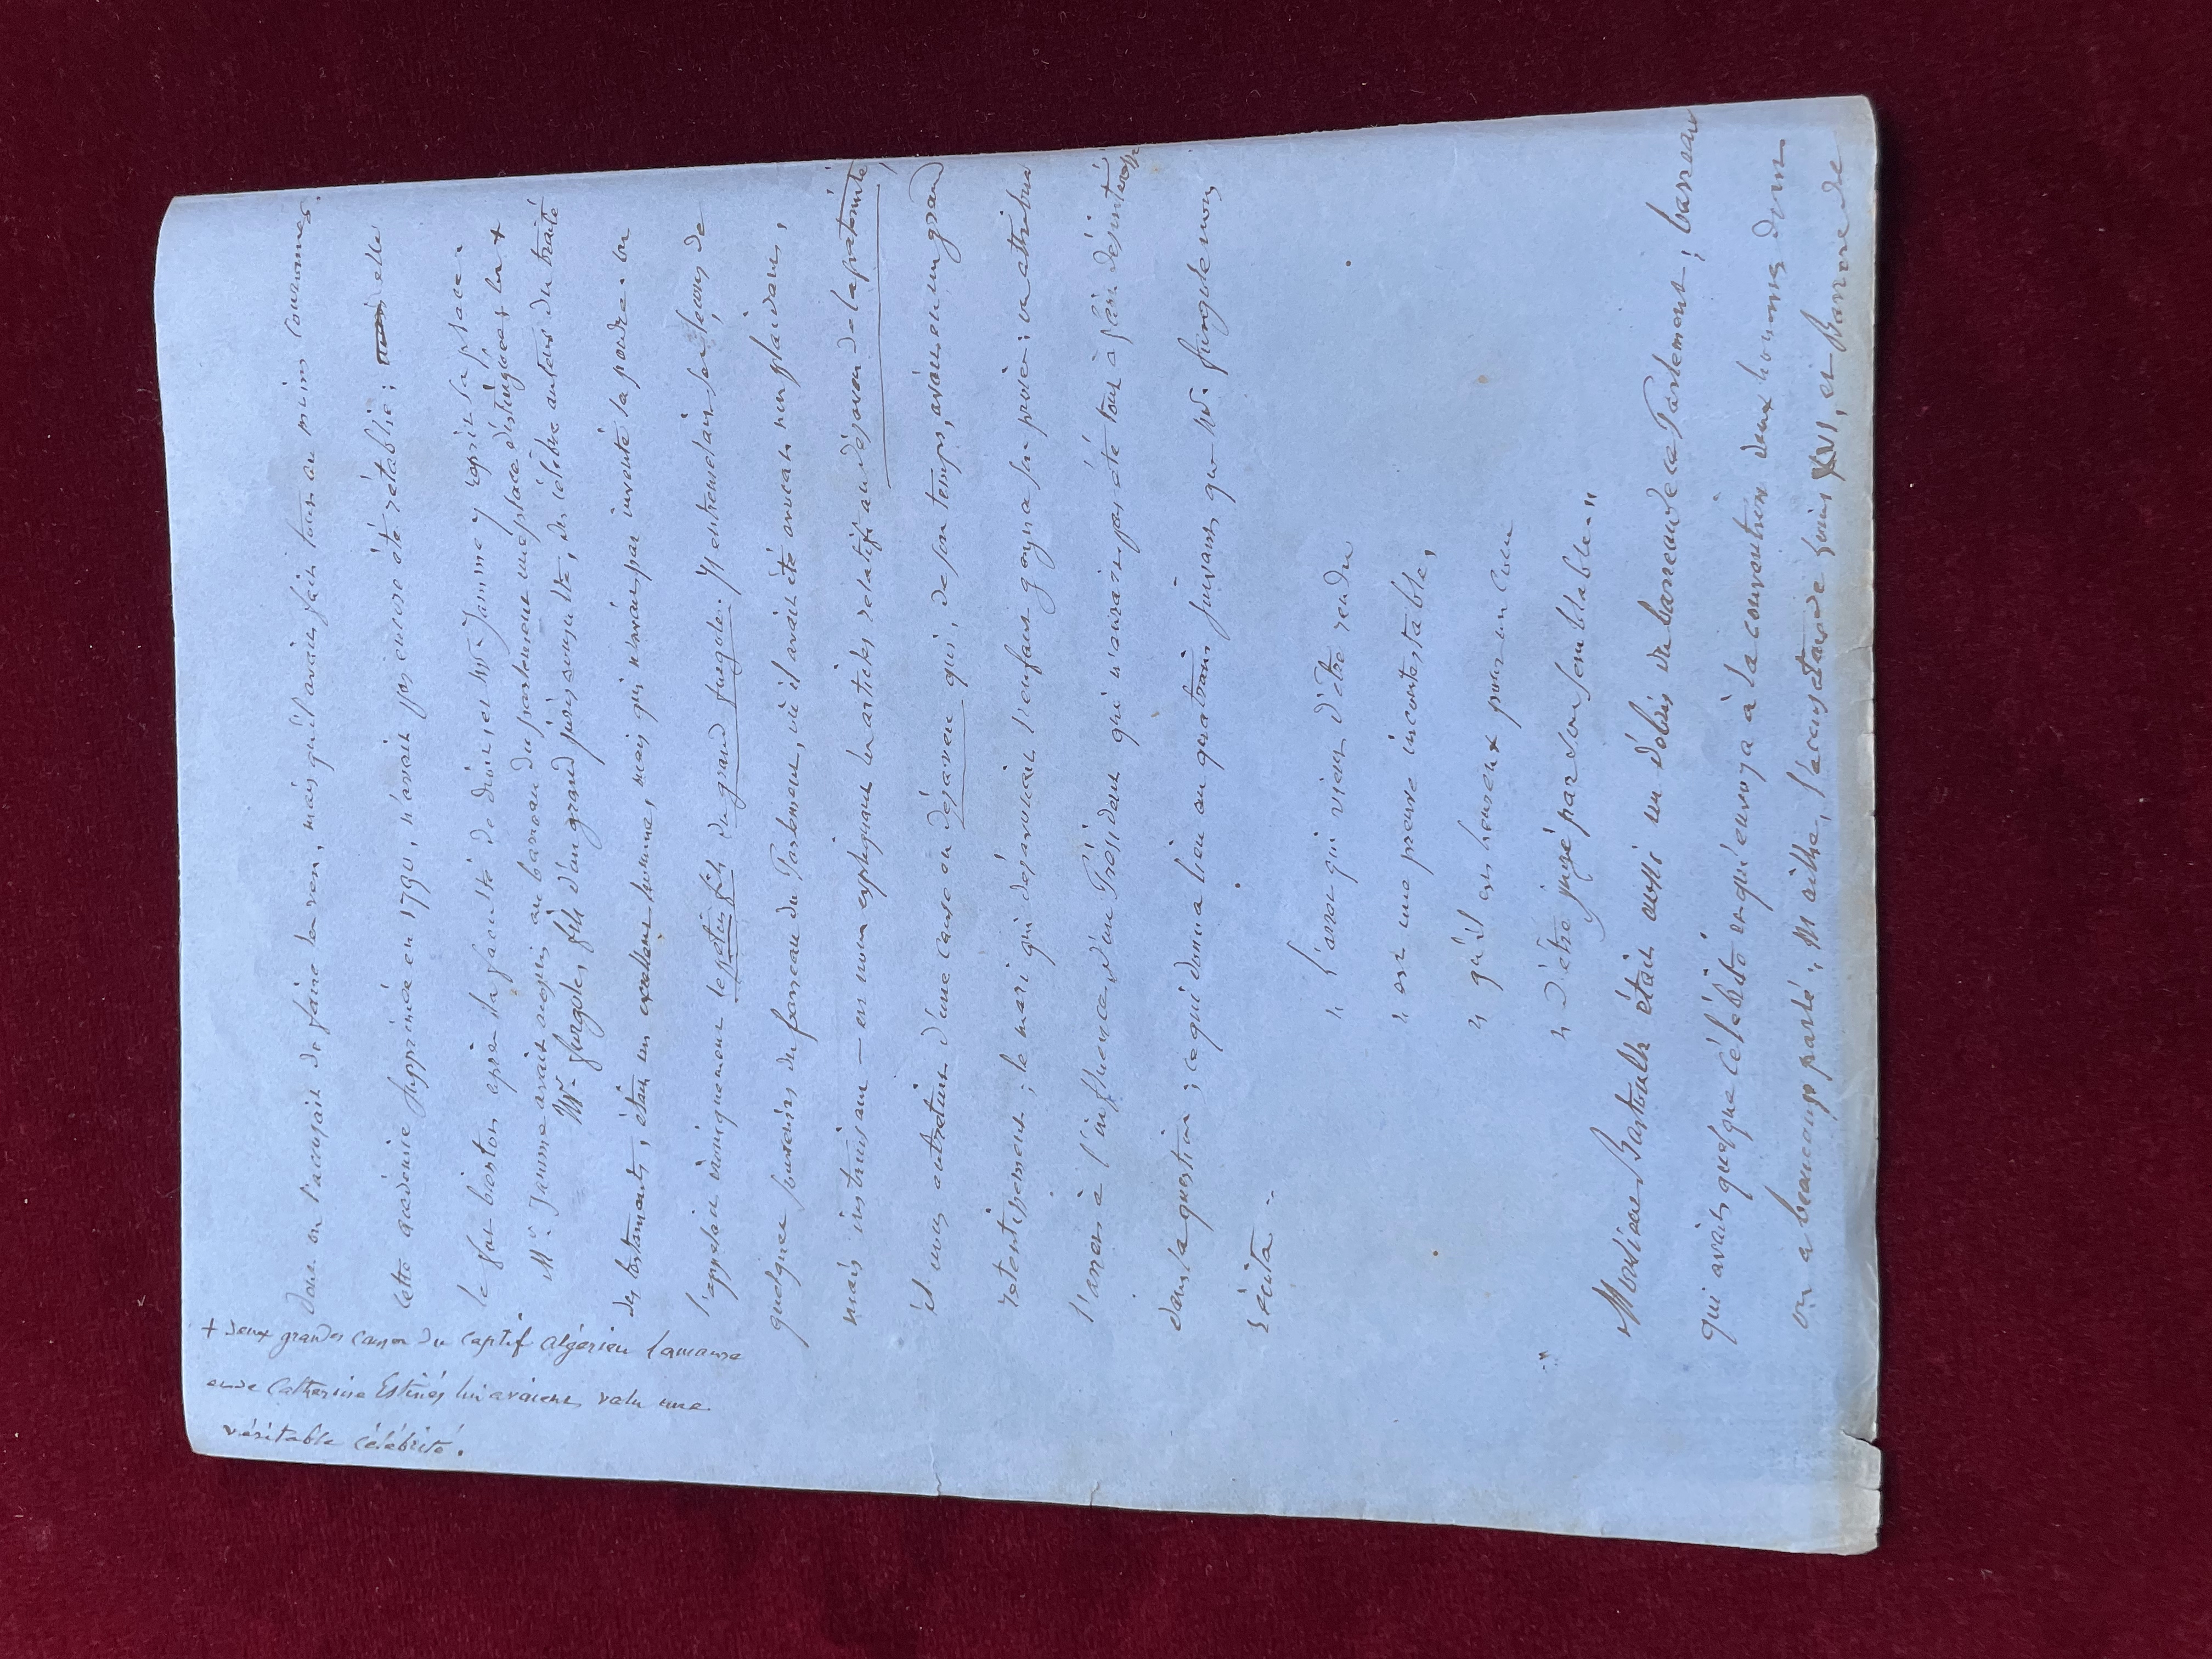 dont on l'accusait de faire les vers, mais qu'il avait fait tous au moins couronner.
Cette académie supprimée en 1790, n'avait pas encore été rétablie; elle
le fut bientôt après la faculté de droit, et Mr Jamme y reprit sa place.
Mr. Jamme avait acquis au barreau du parlement une place distinguée; les +
Mr. furgole, fils d'un grand jurisconsulte, du célèbre auteur du traité
des testaments, était un excellent homme, mais qui n'avait pas inventé la poudre. on
l'appelait ironiquement le petit fils du grand furgole. Il entremêlait ses leçons de
quelques souvenirs du barreau du Parlement, où il avait été avocat non plaidant,
mais instruisant — en nous expliquant les articles relatifs au désaveu de la paternité,
il nous entretint d'une cause en désaveu qui, de son temps, avait eu un grand
retentissement; le mari qui désavouait l'enfant gagna son procès; on attribua
l'arrêt à l'influence d'un Président qui n'aurait pas été tout à fait désintéressé
dans la question; ce qui donna lieu au quatrain suivant que Mr. furgole nous
récita.
" L'arrêt qui vient d'être rendu
" est une preuve incontestable,
" qu'il est heureux pour un cocu
" d'être jugé par son semblable. "
Monsieur Bastoulh était aussi un débris du barreau de ce Parlement; barreau
qui avait quelque célébrité et qu'envoya à la convention deux hommes dont
on a beaucoup parlé; Mailhe, l'accusateur de Louis XVI, et Barrere de
+ deux grandes causes du captif algérien
et de Catherine Estinès lui avaient valu une
véritable célébrité.